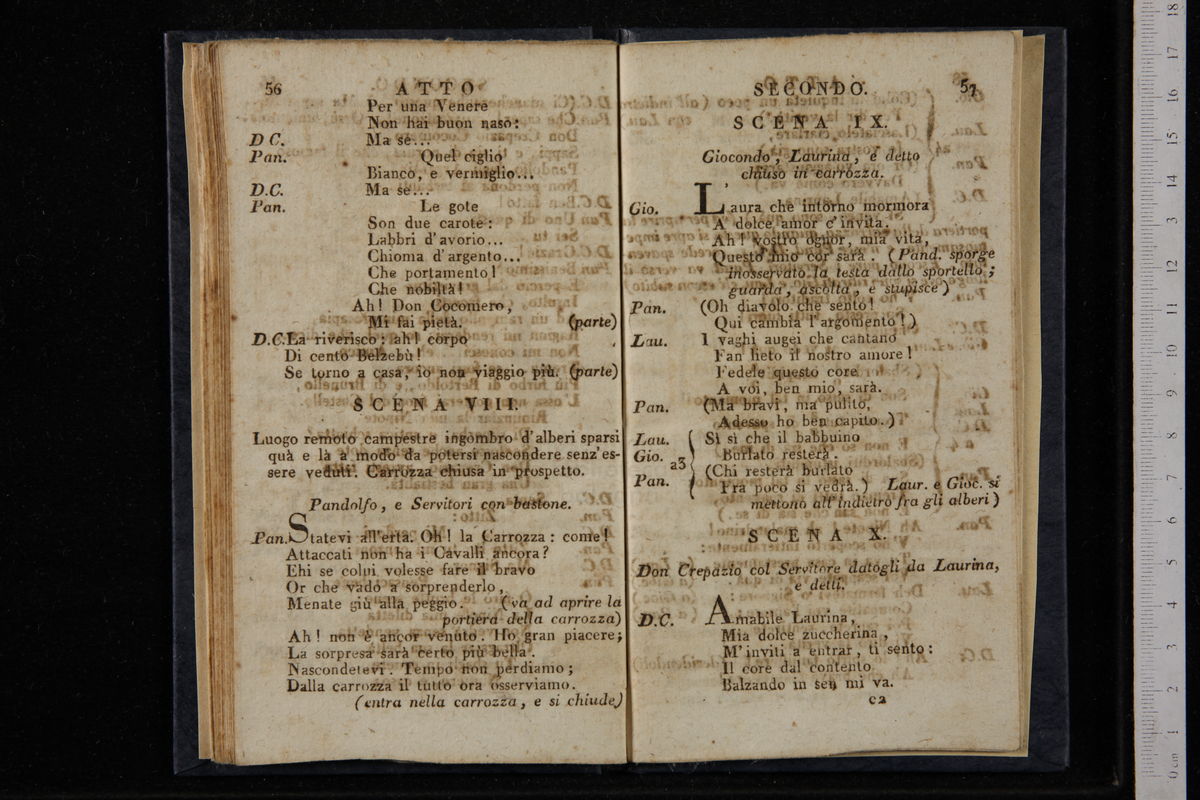 56 ATTO
Per una Venere
Non hai buon naso:
D C. Ma se...
Pan. Quel ciglio
Bianco, e vermiglio...
D.C. Ma se...
Pan. Le gote
Son due carote:
Labbri d'avorio...
Chioma d'argento...
Che portamento!
Che nobiltà!
Ah! Don Cocomero,
Mi fai pietà. (parte)
D.C. La riverisco: ah! corpo
Di cento Belzebù!
Se torno a casa, io non viaggio più. (parte)
SCENA VIII.
Luogo remoto campestre ingombro d'alberi sparsi
quà e là a modo da potersi nascondere senz'es-
sere veduti. Carrozza chiusa in prospetto.
Pandolfo, e Servitori con bastone.
Pan. Statevi all'erta. Oh! la Carrozza: come!
Attaccati non ha i Cavalli ancora?
Ehi se colui volesse fare il bravo
Or che vado a sorprenderlo,
Menate giù alla peggio. (va ad aprire la
portiera della carrozza)
Ah! non è ancor venuto. Ho gran piacere;
La sorpresa sarà certo più bella.
Nascondetevi. Tempo non perdiamo;
Dalla carrozza il tutto ora osserviamo.
(entra nella carrozza, e si chiude)
SECONDO. 57
SCENA IX.
Giocondo, Laurina, e detto
chiuso in carrozza.
Gio. L'aura che intorno mormora
A dolce amor c'invita.
Ah! vostro ognor, mia vita,
Questo mio cor sarà. (Pand. sporge
inosservato la testa dallo sportello;
guarda, ascolta, e stupisce)
Pan. (Oh diavolo che sento!
Qui cambia l'argomento!)
Lau. I vaghi augei che cantano
Fan lieto il nostro amore!
Fedele questo core
A voi, ben mio, sarà.
Pan. (Ma bravi, ma pulito,
Adesso ho ben capito.)
Lau. Sì sì che il babbuino
Gio. a3 Burlato resterà.
(Chi resterà burlato
Pan. Fra poco si vedrà.) Laur. e Gioc. si
mettono all'indietro fra gli alberi)
SCENA X.
Don Crepazio col Servitore datogli da Laurina,
e detti.
D.C. Amabile Laurina,
Mia dolce zuccherina,
M'inviti a entrar, ti sento:
Il core dal contento
Balzando in sen mi va.
c2